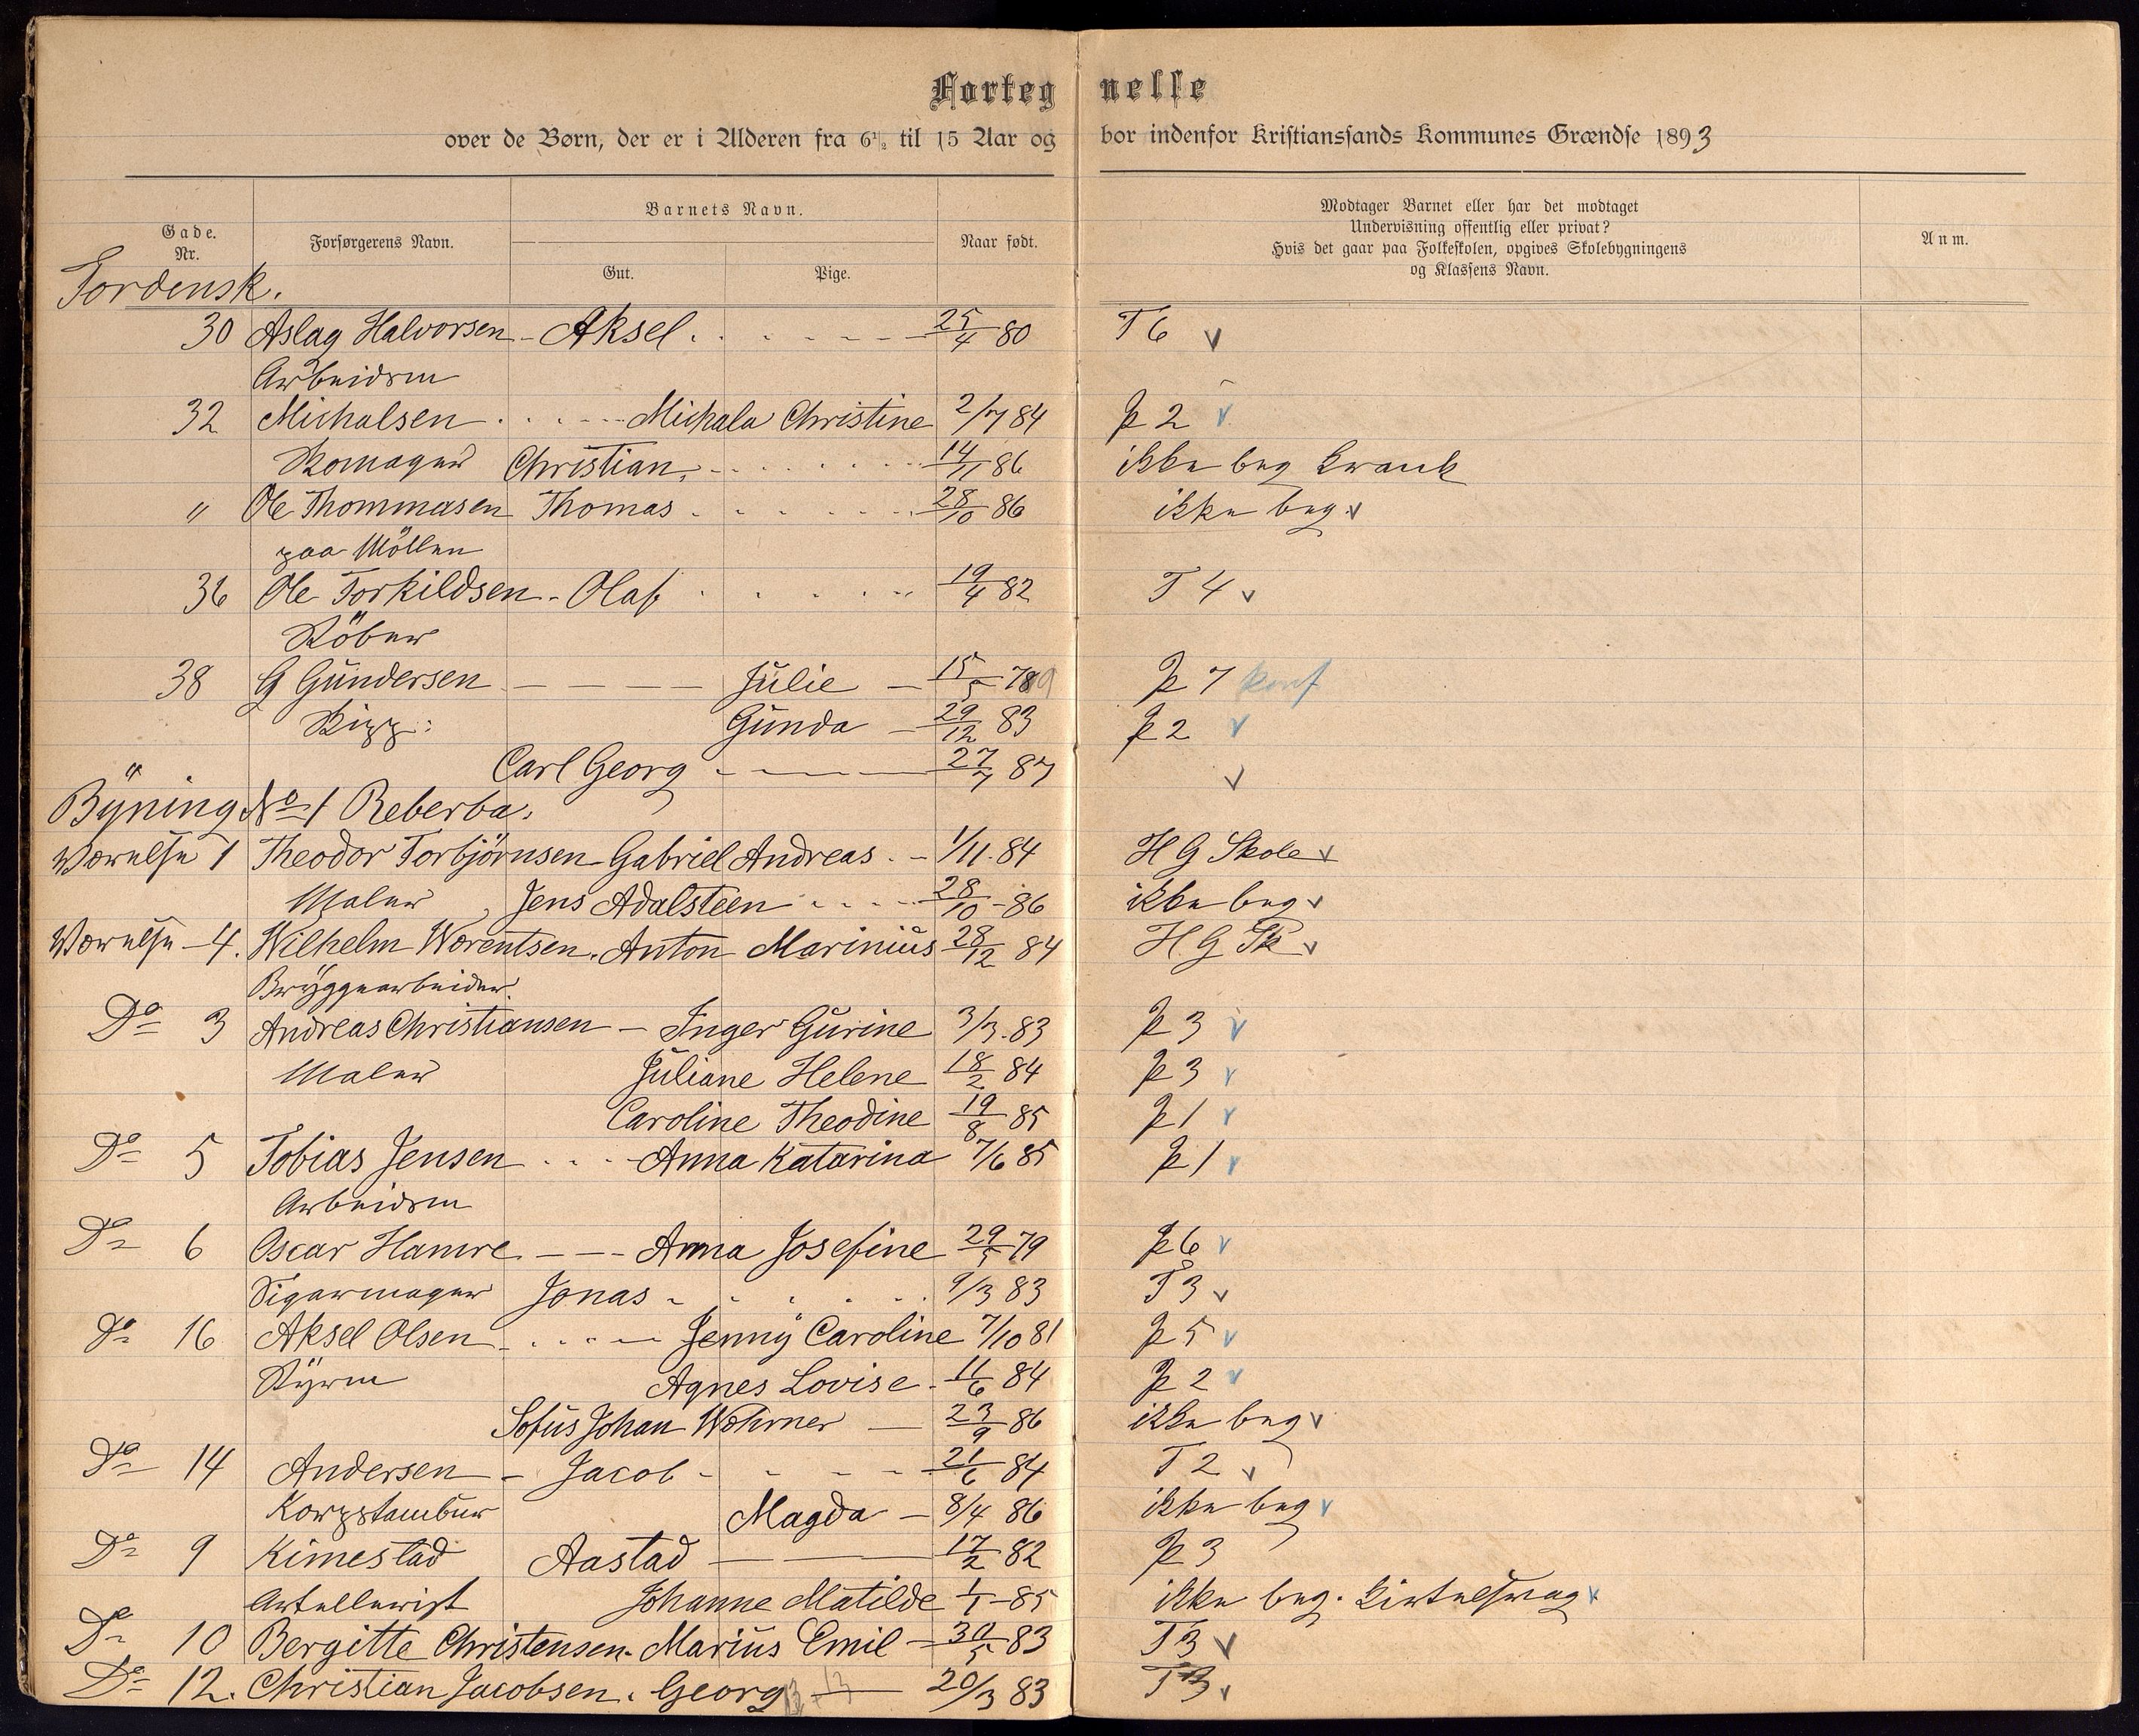 Forteg nelse
over de Børn, der er i Alderen fra 6½ til 15 Aar og bor indenfor Kristianssands Kommunes Grændse 1893
Gade. Nr.
Forsørgerens Navn.
Barnets Navn.
Gut.
Pige.
Naar født.
Modtager Barnet eller har det modtaget
Undervisning offentlig eller privat?
Hvis det gaar paa Folkeskolen, opgives Skolebygningens
og Klassens Navn.
Anm.
Tordensk.
30 Aslag Halvorsen - Aksel 25/4 80 T 6 v
Arbeidsm
32 Michalsen Michala Christine 2/7 84 P 2 v
Skomager Christian 14/11 86 ikke beg Krank
" Ole Thommasen Thomas 28/10 86 ikke beg. v
paa Möllen
36 Ole Torkildsen - Olaf 19/4 82 T 4 v
Röber
38 G Gundersen Julie 15/5 789 P 7 konf
Skipp: Gunda 29/12 83 P 2 v
Carl Georg 27/7 87 v
Byning No 1 Reberba.
Værelse 1 Theodor Torbjörnsen Gabriel Andreas 1/11 84 H G Skole v
Maler Jens Adalsteen 28/10 - 86 ikke beg v
Værelse - 4. Wilhelm Worentsen. Anton Marinius 28/12 84 H. G Sk v
Bryggearbeider.
Do 3 Andreas Christiansen - Inger Gurine 3/3. 83 P 3 v
Maler Juliane Helene 18/2 84 P 3 v
Caroline Theodine 19/8 85 P 1 v
Do 5 Tobias Jensen Anna Katarina 7/6 85 P 1 v
Arbeidsm
Do 6 Oscar Hamre Anna Josefine 29/5 79 P 6 v
Sigarmager Jonas 9/3 83 T 3 v
Do 16 Aksel Olsen Jenny Caroline 7/10 81 P 5 v
Styrm Agnes Lovise 11/6 84 P 2 v
Sofus Johan Wohrner 23/9 86 ikke beg v
Do 14 Andersen - Jacob 21/6 84 T 2 v
Korpstambur Magda 8/4 86 ikke beg v
Do 9 Kimestad Aastad 17/2 82 P 3
Artellerist Johanne Matilde 1/1 - 85 ikke beg. Kirtelsvag v
Do 10 Bergitte Christensen. Marius Emil 30/5 83 T 3 v
Do 12. Christian Jacobsen. Georg 20/3 83 T 3 v